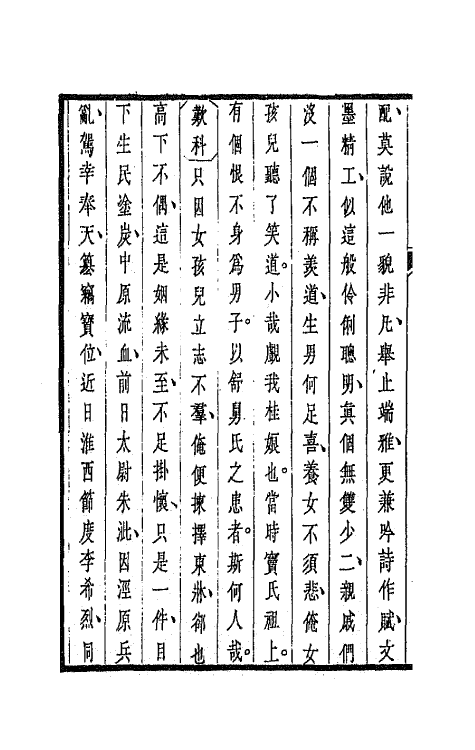 配、莫說他一貌非凡、舉止端雅、更兼吟詩作賦、文
墨精工、似這般伶俐聰明、眞個無雙少二、親戚們
沒一個不稱羨道、生男何足喜、養女不須悲、俺女
孩兒聽了笑道。小哉覷我桂娘也。當時竇氏祖上。
有個恨不身爲男子。以舒舅氏之患者。斯何人哉。
歎科只因女孩兒立志不羣、俺便揀擇東牀、郤也
高下不偶、這是姻緣未至、不足掛懷、只是一件、目
下生民塗炭、中原流血、前日太尉朱泚、因涇原兵
亂、駕幸奉天、纂竊寶位、近日淮西節度李希烈、同